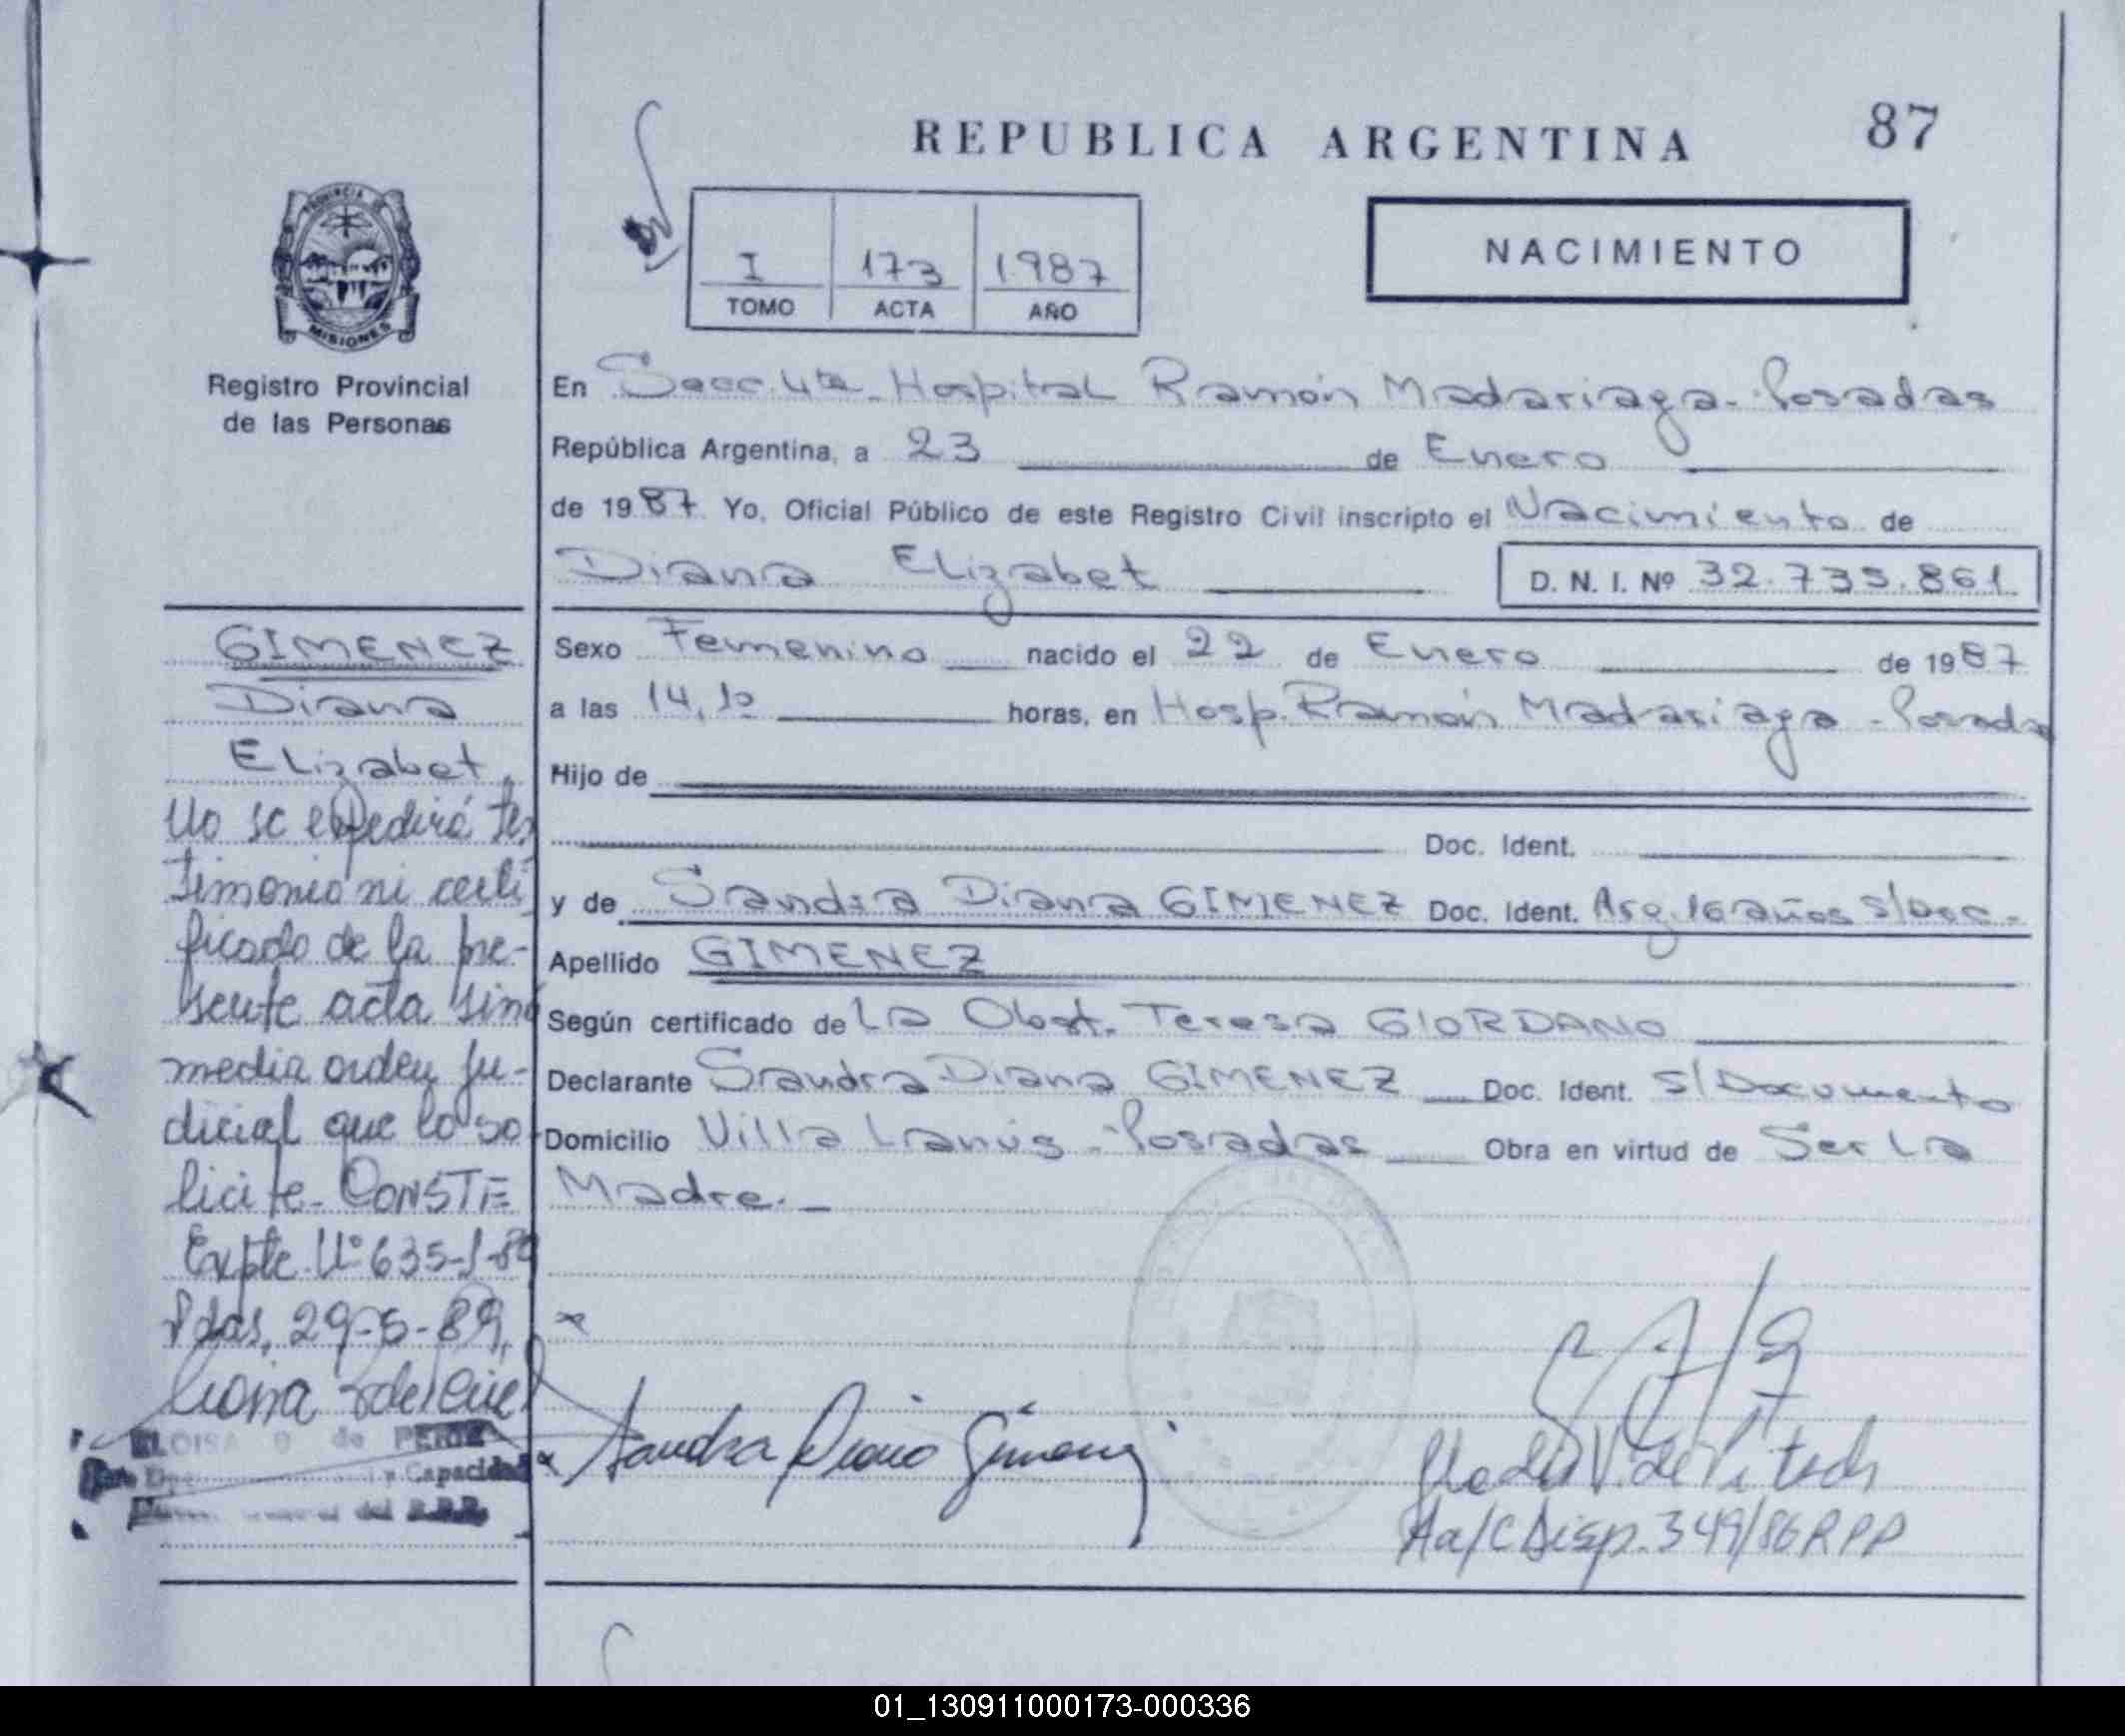 REPUBLICA ARGENTINA 87
NACIMIENTO
I 173 1987
TOMO ACTA AÑO
PROVINCIA DE
MISIONES
Registro Provincial
de las Personas
En Secc. 4ta. Hospital Ramón Madariaga - Posadas
República Argentina, a 23 de Enero
de 1987 Yo, Oficial Público de este Registro Civil inscripto el Nacimiento de
Diana Elizabet D. N. I. Nº 32.735.861
Sexo Femenino nacido el 22 de Enero de 1987
a las 14,10 horas, en Hosp. Ramón Madariaga - Posadas
Hijo de
Doc. Ident.
y de Sandra Diana GIMENEZ Doc. Ident. Arg. 16 años s/Doc.
Apellido GIMENEZ
Según certificado de La Obst. Teresa GIORDANO
Declarante Sandra Diana GIMENEZ Doc. Ident. S/Documento
Domicilio Villa Lanús - Posadas Obra en virtud de Ser La
Madre.
GIMENEZ
Diana
Elizabet
No se expedirá tes
timonio ni certi
ficado de la pre-
sente acta sino
media orden ju-
dicial que lo so
licite - CONSTE
Expte Nº 635-J-89
Pdas, 29-5-89,
ELOISA de
Capacidad
del R.P.P.
Sandra Diana Gimenez
V. de
Aa/C Disp. 349/86 RPP
01_130911000173-000336